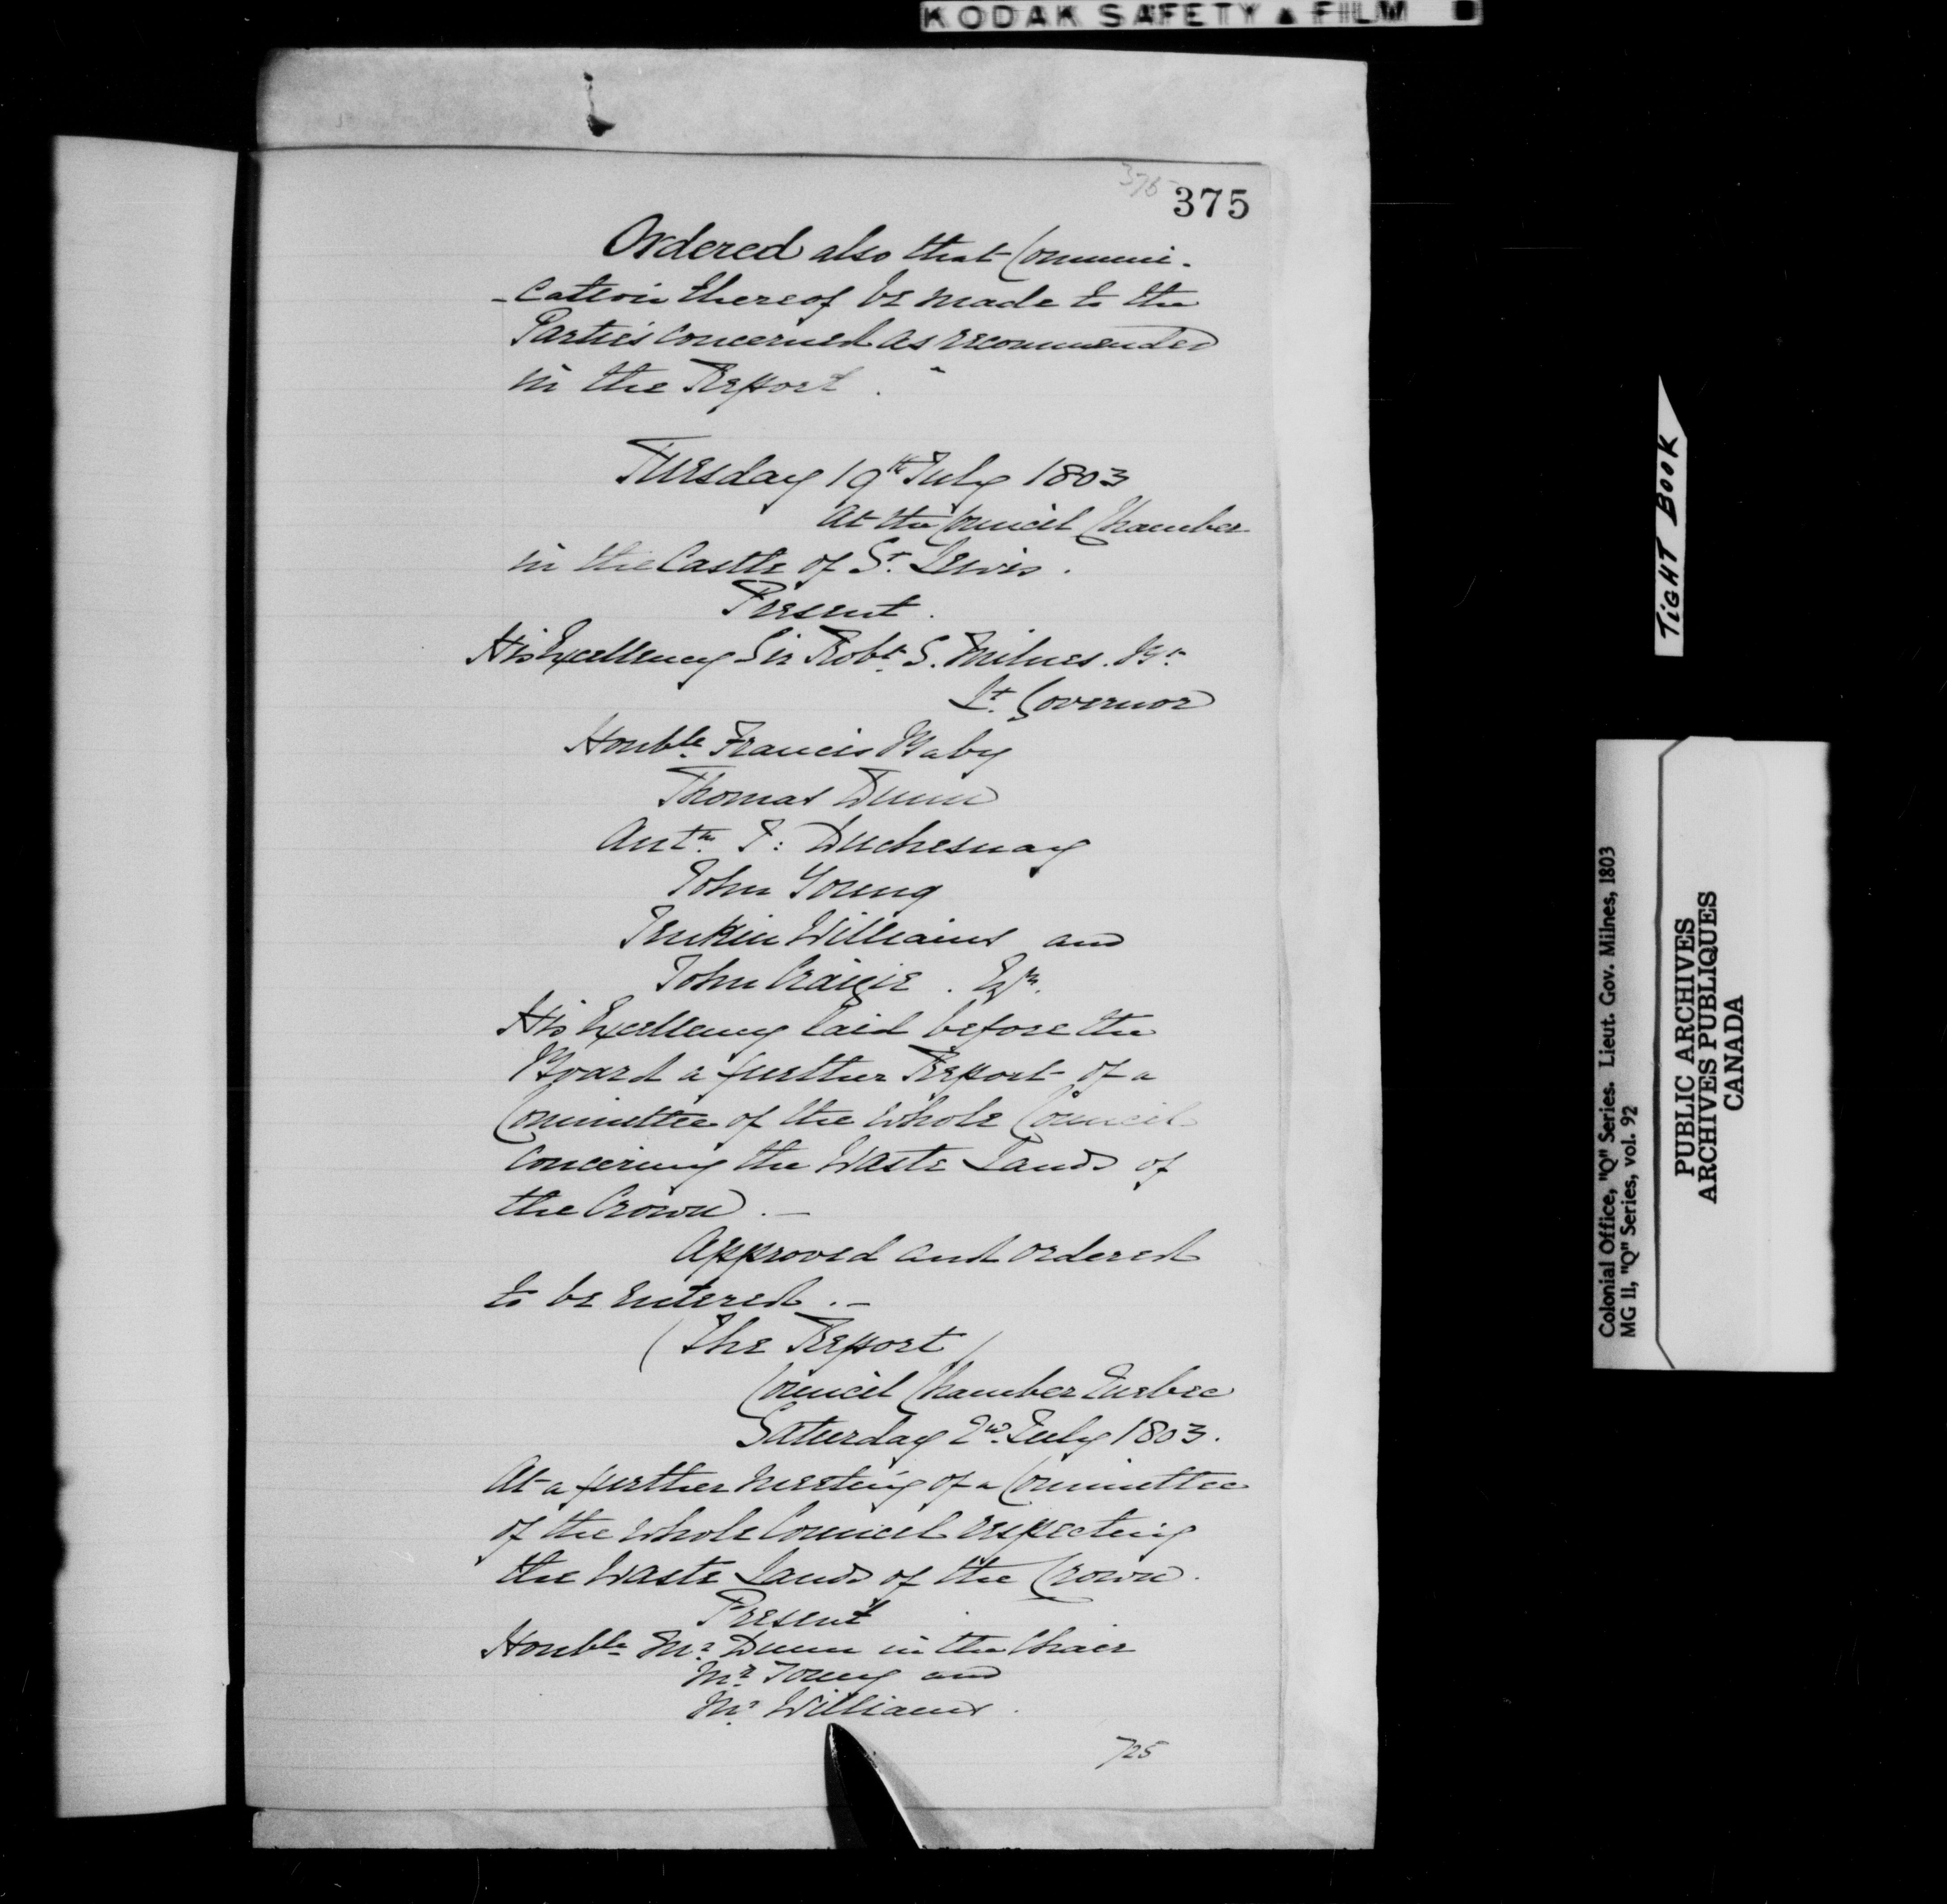 KODAK SAFETY ▲ FILM
375
375
Ordered also that Communi-
-cation thereof be made to the
Parties concerned as recommended
in the Report.
Tuesday 19th July 1803
At the Council Chamber
in the Castle of St. Lewis.
Present.
His Excellency Sir Robt. S. Milnes. Bt.
Lt. Governor
Honble. Francis Baby
Thomas Dunn
Antn. J: Duchesnay
John Young
Jenkin Williams and
John Craigie. Esqrs.
His Excellency laid before the
Board a further Report of a
Committee of the whole Council
concerning the Waste Lands of
the Crown.—
Approved and ordered
to be entered.—
(The Report)
Council Chamber Quebec
Saturday 2nd. July 1803.
At a further meeting of a Committee
of the whole Council respecting
the Waste Lands of the Crown.
Present
Honble. Mr. Dunn in the Chair
Mr. Young and
Mr. Williams.
725
TIGHT BOOK
Colonial Office, "Q" Series. Lieut. Gov. Milnes, 1803
MG 11, "Q" Series, vol. 92
PUBLIC ARCHIVES
ARCHIVES PUBLIQUES
CANADA